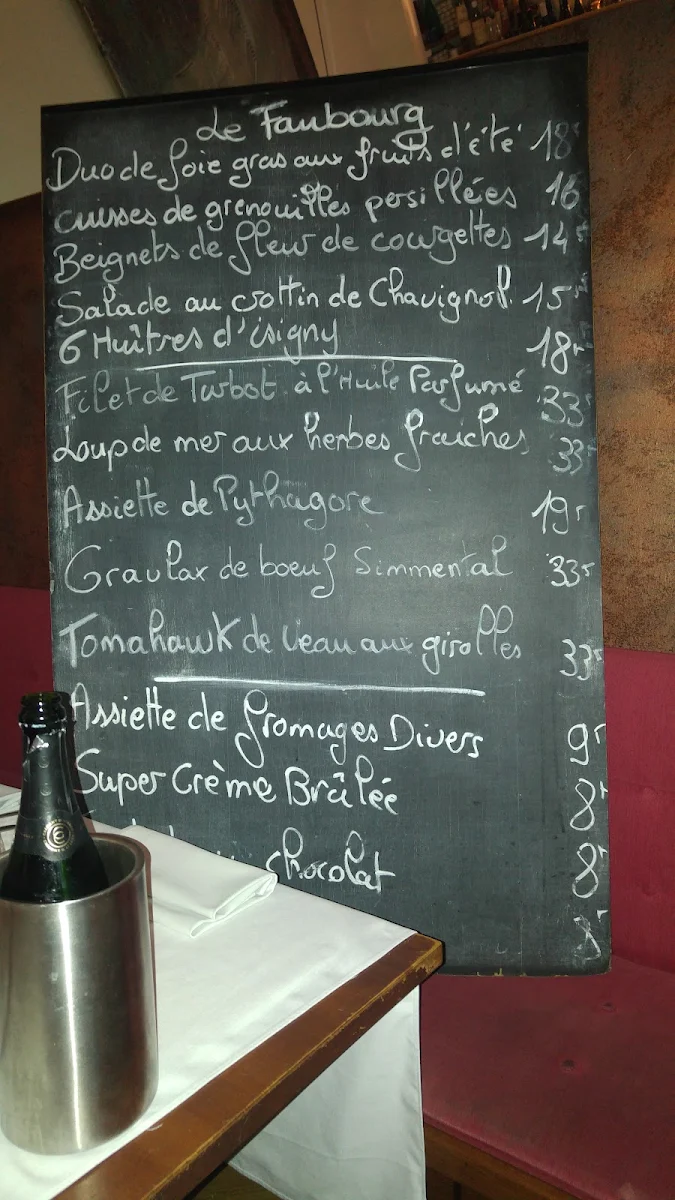 Le Faubourg
Duo de foie gras aux fruits d'été 18
cuisses de grenouilles persillées 16
Beignets de fleur de courgettes 14
Salade au crottin de Chavignol 15
6 Huîtres d'isigny 18
Filet de Turbot à l'Huile Parfumé 33
Loup de mer aux herbes fraiches 33
Assiette de Pythagore 19
Gravlax de boeuf Simmental 33
Tomahawk de veau aux girolles 33
Assiette de fromages Divers 9
Super Crème Brûlée 8
chocolat 8
8